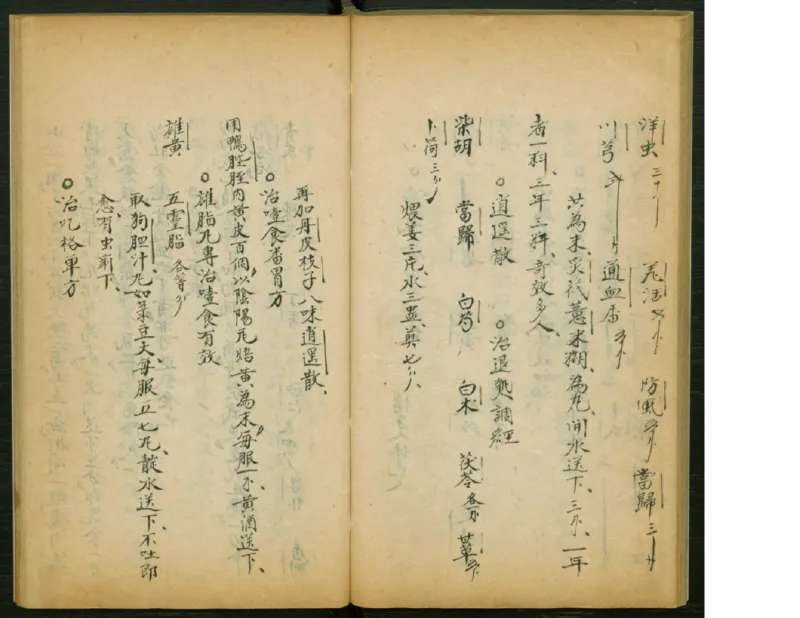 洋虫 羌活 防風 當歸
川芎 通血香
共為末、炙芪薏米糊、為丸、開水送下、三分、一年
者一料、三年三料、奇效多人、
○逍遥散 ○治退熱調經
柴胡 當歸 白芍 白术 茯苓 甘草
卜荷三分
煨姜三片、水三盅、煎七分、
再加丹皮枝子八味逍遥散、
○治噎食番胃方
用鴨胵胵内黄皮百個、以陰陽瓦焙黄為末、每服一不黄酒送下、
○雄脂丸專治噎食有效
雄黄 五靈脂 各等分
取狗胆汁、丸如菉豆大、每服五七丸、酸水送下、不吐即
愈、有虫前下、
○治吃格單方